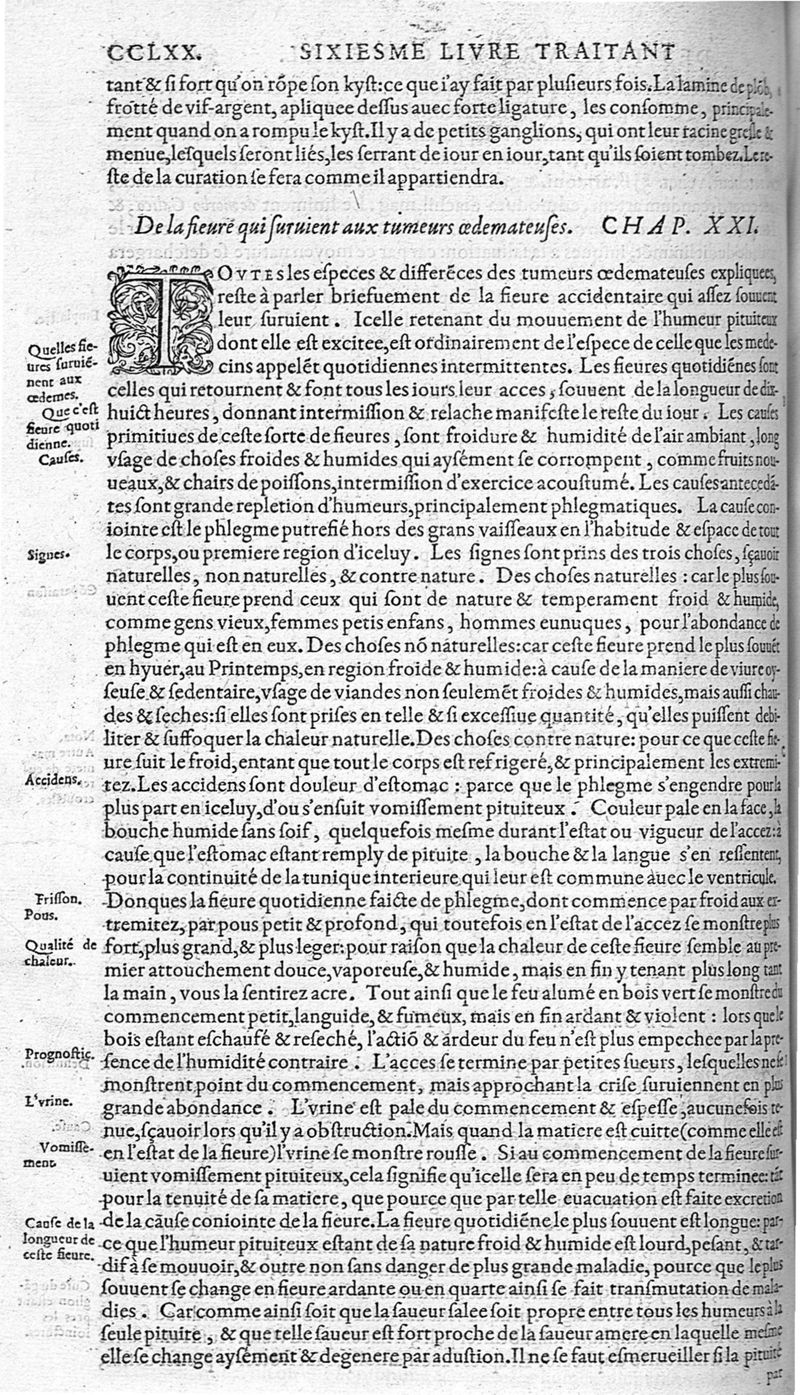 CCLXX. SIXIESME LIVRE TRAITANT
tant & si fort qu'on rõpe son kyst: ce que i'ay fait par plusieurs fois. La lamine de plõb,
frotté de vif-argent, apliquee dessus auec forte ligature, les consomme, principale-
ment quand on a rompu le kyst. Il y a de petits ganglions, qui ont leur racine gresle &
menue, lesquels seront liés, les serrant de iour en iour, tant qu'ils soient tombez. Le re-
ste de la curation se fera comme il appartiendra.
De la fieure qui suruient aux tumeurs œdemateuses. CHAP. XXI.
TOVTES les especes & differẽces des tumeurs œdemateuses expliquees,
reste à parler briefuement de la fieure accidentaire qui assez souuent
leur suruient. Icelle retenant du mouuement de l'humeur pituiteux
dont elle est excitee, est ordinairement de l'espece de celle que les mede-
cins appelẽt quotidiennes intermittentes. Les fieures quotidiẽnes sont
Quelles fie-
ures suruiẽ-
nent aux
œdemes.
celles qui retournent & font tous les iours leur acces, souuent de la longueur de dix-
huict heures, donnant intermission & relache manifeste le reste du iour. Les causes
Que c'est
fieure quoti
dienne.
primitiues de ceste sorte de fieures, sont froidure & humidité de l'air ambiant, long
Causes.
vsage de choses froides & humides qui aysément se corrompent, comme fruits nou-
ueaux, & chairs de poissons, intermission d'exercice acoustumé. Les causes antecedã-
tes sont grande repletion d'humeurs, principalement phlegmatiques. La cause con-
iointe est le phlegme putrefié hors des grans vaisseaux en l'habitude & espace de tout
le corps, ou premiere region d'iceluy. Les signes sont prins des trois choses, sçauoir
Signes.
naturelles, non naturelles, & contre nature. Des choses naturelles: car le plus sou-
uent ceste fieure prend ceux qui sont de nature & temperament froid & humide,
comme gens vieux, femmes petis enfans, hommes eunuques, pour l'abondance de
phlegme qui est en eux. Des choses nõ naturelles: car ceste fieure prend le plus souuẽt
en hyuer, au Printemps, en region froide & humide: à cause de la maniere de viure oy-
seuse & sedentaire, vsage de viandes non seulemẽt froides & humides, mais aussi chau-
des & seches: si elles sont prises en telle & si excessiue quantité, qu'elles puissent debi-
liter & suffoquer la chaleur naturelle. Des choses contre nature: pour ce que ceste fie-
ure suit le froid, entant que tout le corps est refrigeré, & principalement les extremi-
tez. Les accidens sont douleur d'estomac: parce que le phlegme s'engendre pour la
Accidens.
plus part en iceluy, d'ou s'ensuit vomissement pituiteux. Couleur pale en la face, la
bouche humide sans soif, quelquefois mesme durant l'estat ou vigueur de l'accez: à
cause que l'estomac estant remply de pituite, la bouche & la langue s'en ressentent,
pour la continuité de la tunique interieure qui leur est commune auec le ventricule.
Donques la fieure quotidienne faicte de phlegme, dont commence par froid aux ex-
Frisson.
tremitez, par pous petit & profond, qui toutefois en l'estat de l'accez se monstre plus
Pous.
fort, plus grand, & plus leger: pour raison que la chaleur de ceste fieure semble au pre-
Qualité de
chaleur.
mier attouchement douce, vaporeuse, & humide, mais en fin y tenant plus long tant
la main, vous la sentirez acre. Tout ainsi que le feu alumé en bois vert se monstre du
commencement petit, languide, & fumeux, mais en fin ardant & violent: lors que le
bois estant eschaufé & reseché, l'actiõ & ardeur du feu n'est plus empechee par la pre-
sence de l'humidité contraire. L'acces se termine par petites sueurs, lesquelles ne se
Prognostic.
monstrent point du commencement, mais approchant la crise suruiennent en plus
grande abondance. L'vrine est pale du commencement & espesse, aucunefois te-
L'vrine.
nue, sçauoir lors qu'il y a obstruction. Mais quand la matiere est cuitte (comme elle est
en l'estat de la fieure) l'vrine se monstre rousse. Si au commencement de la fieure sur-
Vomisse-
ment.
uient vomissement pituiteux, cela signifie qu'icelle sera en peu de temps terminee: tãt
pour la tenuité de sa matiere, que pource que par telle euacuation est faite excretion
de la cause coniointe de la fieure. La fieure quotidiẽne le plus souuent est longue: par-
Cause de la
longueur de
ceste fieure.
ce que l'humeur pituiteux estant de sa nature froid & humide est lourd, pesant, & tar-
dif à se mouuoir, & outre non sans danger de plus grande maladie, pource que le plus
souuent se change en fieure ardante ou en quarte ainsi se fait transmutation de mala-
dies. Car comme ainsi soit que la saueur salee soit propre entre tous les humeurs à la
seule pituite, & que telle saueur est fort proche de la saueur amere en laquelle mesme
elle se change aysément & degenere par adustion. Il ne se faut esmerueiller si la pituité
par